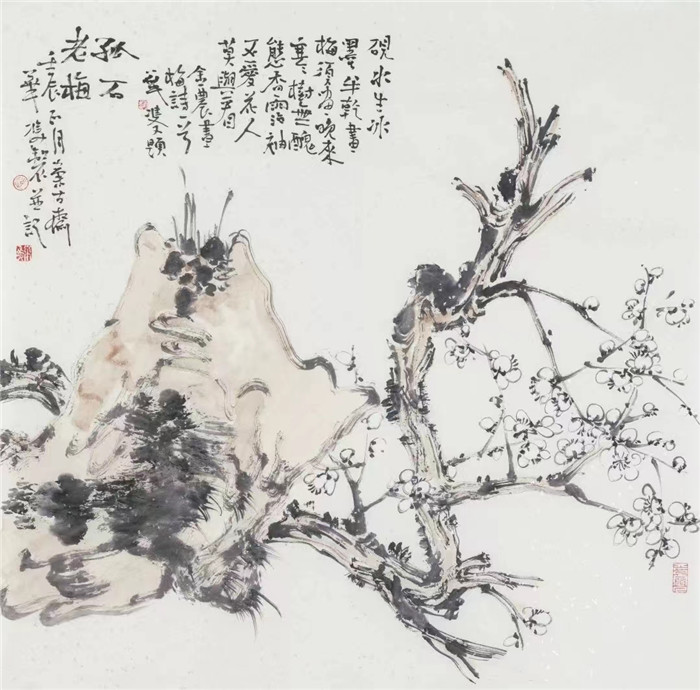 硯水生冰
墨半乾畫
梅須畫晚來
寒樹無醜
態香霑袖
不愛花人
莫與看
金農畫
梅詩一首
孤石
老梅
壬辰正月